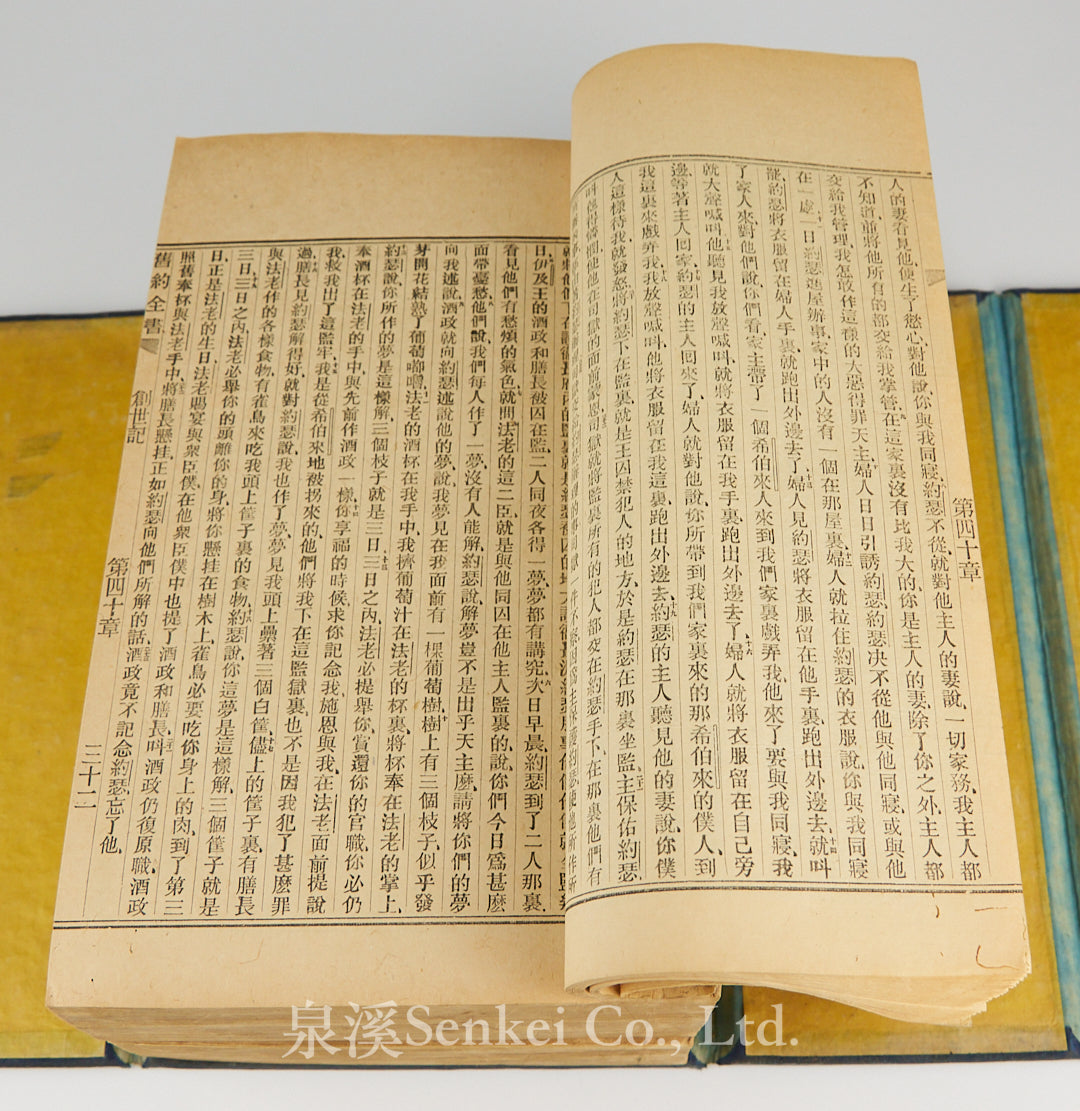 第四十章
人的妻看見他便生了慾心、對他說、你與我同寢、約瑟不從、就對他主人的妻說、一切家務、我主人都
不知道、並將他所有的都交給我掌管、在這家裏沒有比我大的、你是主人的妻、除了你之外、主人都
交給我管理、我怎敢作這樣的大惡得罪天主、婦人日日引誘約瑟、約瑟决不從他、與他同寢、或與他
在一處、一日約瑟進屋辦事、家中的人沒有一個在那屋裏、婦人就拉住約瑟的衣服說、你與我同寢
罷、約瑟將衣服留在婦人手裏、就跑出外邊去了、婦人見約瑟將衣服留在他手裏跑出外邊去、就叫
了家人來、對他們說、你們看、家主帶了一個希伯來人來到我們家裏戲弄我、他來了、要與我同寢、我
就大聲喊叫、他聽見我放聲喊叫、就將衣服留在我手裏、跑出外邊去了、婦人就將衣服留在自己旁
邊、等著主人回家、約瑟的主人回來了、婦人就對他說、你所帶到我們家裏來的那希伯來的僕人、到
我這裏來戲弄我、我放聲喊叫、他將衣服留在我這裏、跑出外邊去、約瑟的主人聽見他的妻說、你僕
人這樣待我、就發怒、將約瑟下在監裏、就是王囚禁犯人的地方、於是約瑟在那裏坐監、主保佑約瑟、
在司獄的面前蒙恩、司獄就將監裏所有的犯人、都交在約瑟手下、在那裏他們有
日、伊及王的酒政和膳長被囚在監、二人同夜各得一夢、夢都有講究、次日早晨、約瑟到了二人那裏、
看見他們有愁煩的氣色、就問法老的這二臣、就是與他同囚在他主人監裏的、說、你們今日爲甚麽
面帶憂愁、他們說、我們每人作了一夢、沒有人能解、約瑟說、解夢豈不是出乎天主麽、請將你們的夢
向我述說、酒政就向約瑟述說他的夢、說、我夢見在我面前有一棵葡萄樹、樹上有三個枝子、似乎發
芽開花結熟了葡萄嘟嚕、法老的酒杯在我手中、我擠葡萄汁在法老的杯裏、將杯奉在法老的掌上、
約瑟說、你所作的夢是這樣解、三個枝子就是三日、三日之內、法老必提舉你、賞還你的官職、你必仍
奉酒杯在法老的手中、與先前作酒政一樣、你享福的時候、求你記念我、施恩與我、在法老面前提說
我、救我出了這監牢、我是從希伯來地被拐來的、他們將我下在這監獄裏、也不是因我犯了甚麽罪
過、膳長見約瑟解得好、就對約瑟說、我也作了夢、夢見我頭上纍著三個白筐、儘上的筐子裏、有膳長
與法老作的各樣食物、有雀鳥來吃我頭上筐子裏的食物、約瑟說、你這夢是這樣解、三個筐子就是
三日、三日之內、法老必舉你的頭離你的身、將你懸挂在樹木上、雀鳥必要吃你身上的肉、到了第三
日、正是法老的生日、法老賜宴與衆臣僕、在他衆臣僕中也提了酒政和膳長、叫酒政仍復原職、酒政
照舊奉杯與法老手中、將膳長懸挂、正如約瑟向他們所解的話、酒政竟不記念約瑟、忘了他、
舊約全書
創世記
第四十章
三十二
泉溪Senkei Co., Ltd.